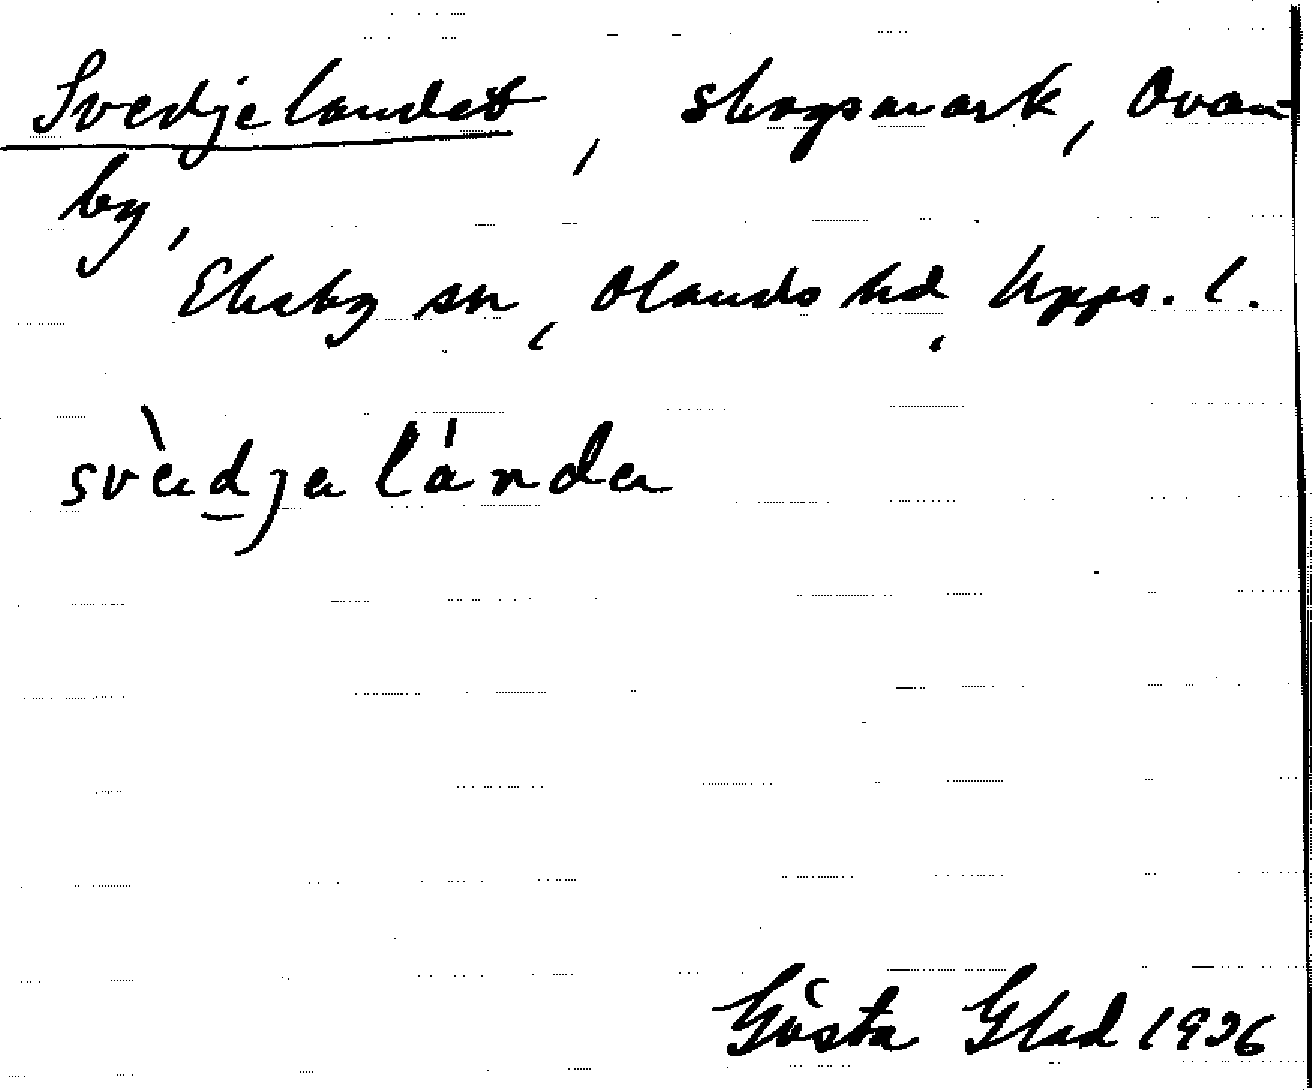 Svedjelandet, skogsmark, Ovan-
by,
Ekeby sn, Olands hd, Upps. l.
svèdjelánde
Gösta Glad 1936